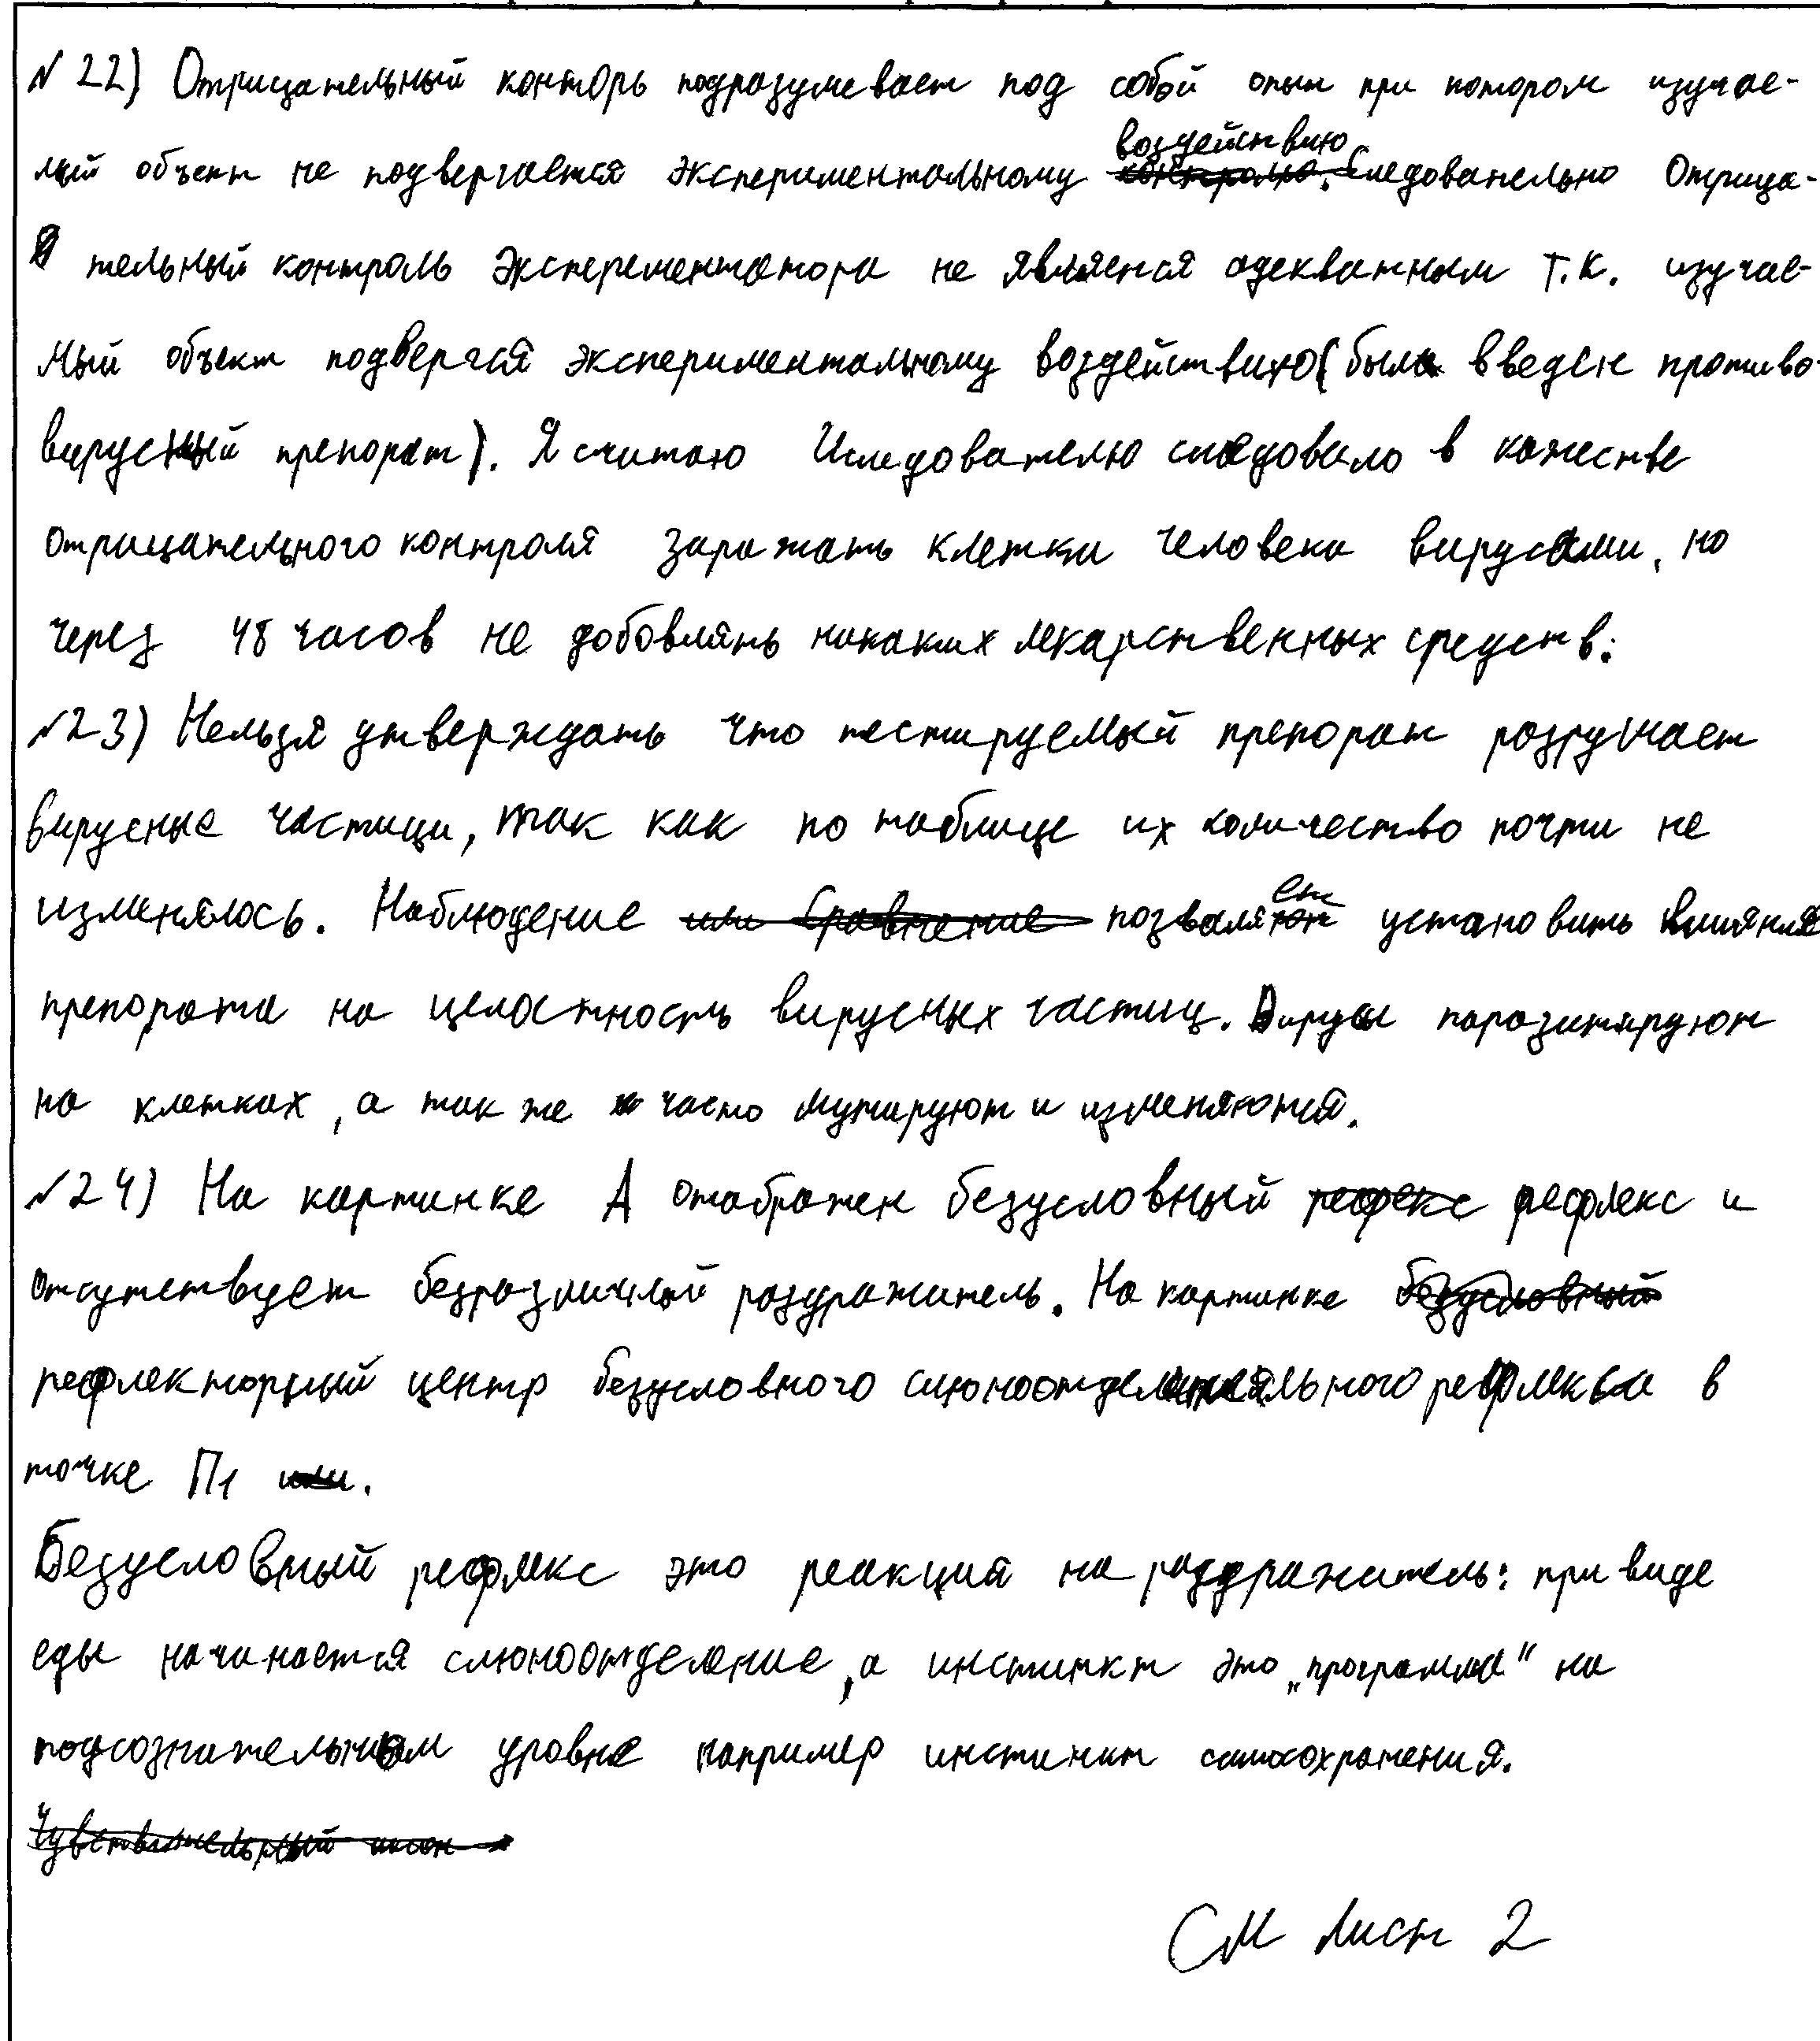 № 22) Отрицательный конторь подразумевает под собой опыт при котором изучае-
мый объект не подвергается экспериментальному воздействию Следовательно Отрица-
тельный контроль Эксперементатора не является адекватным т.к. изучае-
мый объект подвергся экспериментальному воздействию (был введен противо-
вирусный препарат). Я считаю Иследователю следовало в качестве
отрицательного контроля заражать клетки человека вирусами, но
через 48 часов не добовлять никаких лекарственных средств.
№23) Нельзя утверждать что тестируемый препарат разрушает
вирусные частици, так как по таблице их количество почти не
изменялось. Наблюдение позваляет установить влияние
препарата на целостность вирусных частиц. Вирусы паразитируют
на клетках, а так же часто мутируют и изменяются.
№24) На картинке А отображен безусловный рефлекс и
отсутствует безразличный раздражитель. На картинке
рефлекторный центр безусловного слюноотделительного рефлекса в
точке П1.
Безусловный рефлекс это реакция на раздражитель: при виде
еды начинается слюноотделение, а инстинкт это „программа" на
подсознательном уровне например инстинкт самосохранения.
См Лист 2